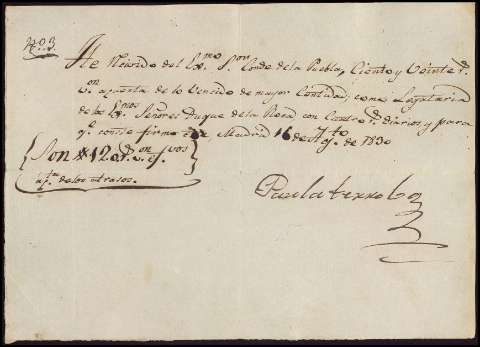 Nº 3.
He Recivido del Exmo Sor Conde de la Puebla, Ciento y Veinte rs
von a cuenta de lo Vencido de mayor Cantidad, como Legataria
de los Exmos Señores Duque de la Roca con Cuatro rs diarios, y para
qe conste firmo en Madrid 16 de Agto de 1830
Son 120 rs von efvos
a cta de los atrasos.